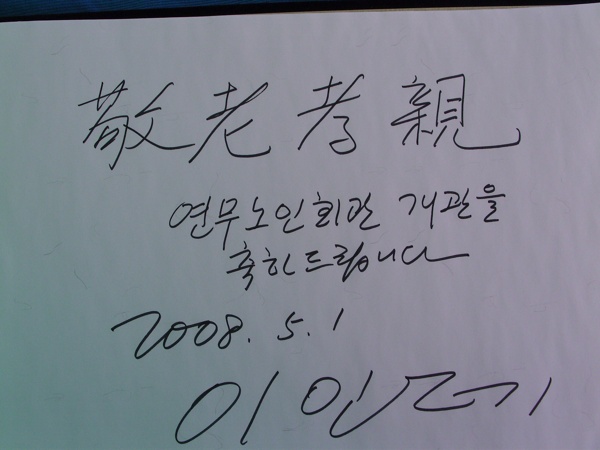 敬老孝親
연무노인회관 개관을
축하드립니다
2008. 5. 1
이인제